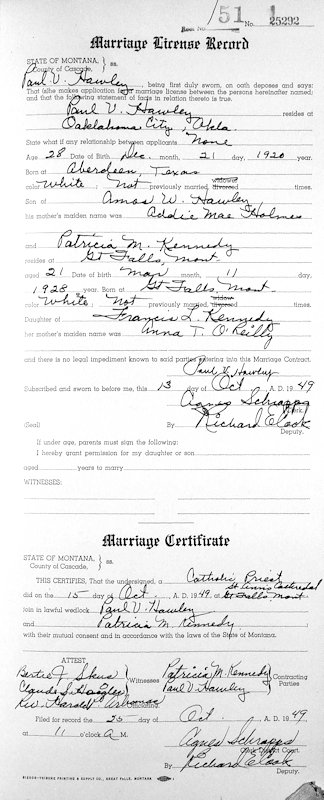 Book No. 51 1 No. 25292
Marriage License Record
STATE OF MONTANA, } ss.
County of Cascade,
Paul V. Hawley, being first duly sworn, on oath deposes and says:
That (s)he makes application for marriage license between the persons hereinafter named;
and that the following statement of facts in relation thereto is true.
Paul V. Hawley resides at
Oaklahoma City, Okla.
State what if any relationship between applicants None
Age 28 Date of Birth Dec. month, 21 day, 1920 year.
Born at Aberdeen, Texas
color White; Not previously married, widowed divorced times.
Son of Amos W. Hawley
his mother's maiden name was Addie Mae Holmes
and Patricia M. Kennedy
resides at Gt Falls, Mont.
aged 21 Date of birth Mar month, 11 day,
1928 year. Born at Gt Falls, Mont.
color White; Not previously married, widow divorced times.
Daughter of Francis L. Kennedy
her mother's maiden name was Anna T. O'Reilly
and there is no legal impediment known to said parties entering into this Marriage Contract.
Paul V. Hawley
Subscribed and sworn to before me, this 13 day of Oct., A. D. 1949
Agnes Schrapps
Clerk.
(Seal) By Richard Cook
Deputy.
If under age, parents must sign the following:
I hereby grant permission for my daughter or son
aged years to marry
WITNESSES:
Marriage Certificate
STATE OF MONTANA, } ss.
County of Cascade,
THIS CERTIFIES, That the undersigned, a Catholic Priest
did on the 15 day of Oct., A. D. 1949, at St Anns Cathedral Gt Falls, Mont
join in lawful wedlock Paul V. Hawley
and Patricia M. Kennedy
with their mutual consent and in accordance with the laws of the State of Montana.
ATTEST
Bertie J. Witnesses Patricia M. Kennedy Contracting
Claude S. Paul V. Hawley Parties
Rev. Harold
Filed for record the 25 day of Oct., 1949
at 11 o'clock A M.
Agnes Schrapps
Clerk District Court.
By Richard Cook
Deputy.
RIEDER-TRIBUNE PRINTING & SUPPLY CO., GREAT FALLS, MONTANA